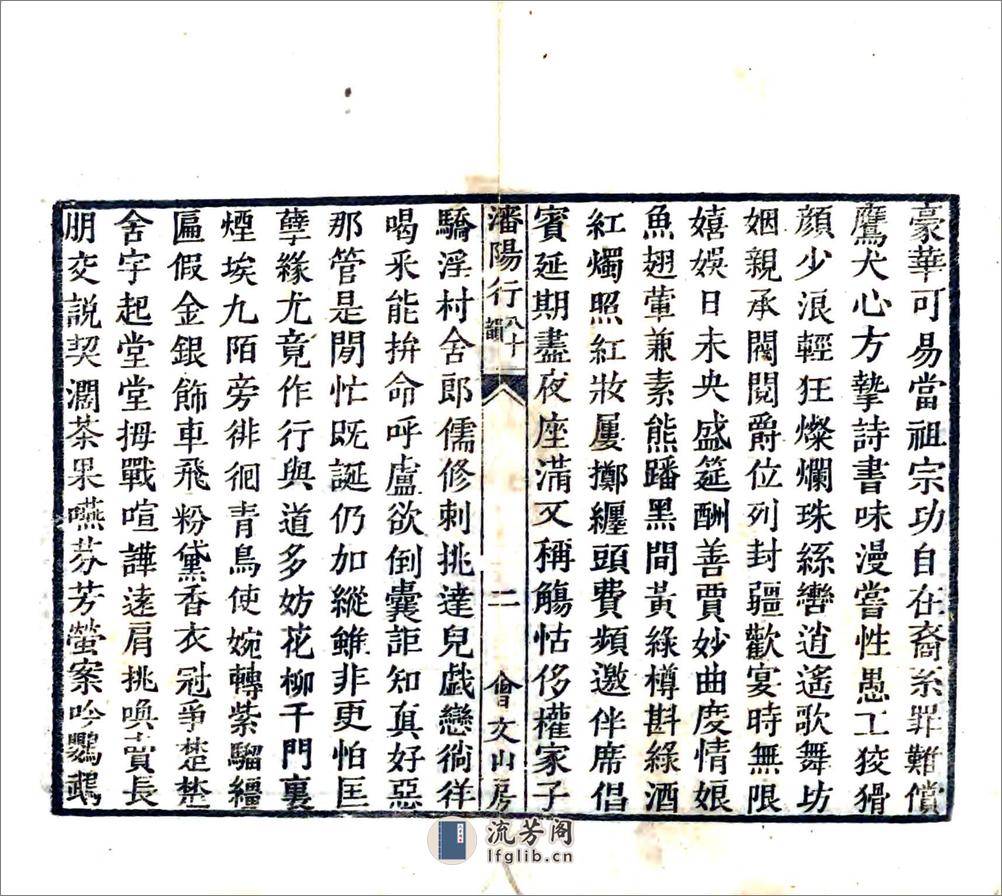 豪華可易當祖宗功自在裔系罪難償
鷹犬心方摯詩書味漫嘗性愚工狡猾
顏少浪輕狂燦爛珠絲轡逍遙歌舞坊
姻親承閥閱爵位列封疆歡宴時無限
嬉娛日未央盛筵酬善賈妙曲度情娘
魚翅葷兼素熊蹯黑間黃綠樽斟綠酒
紅燭照紅妝屢擲纏頭費頻邀伴席倡
賓延期盡夜座滿又稱觴怙侈權家子
瀋陽行 八十韻 二 會文山房
驕淫村舍郎儒修刺挑達兒戲戀徜徉
喝釆能拚命呼盧欲倒囊詎知真好惡
那管是閒忙既誕仍加縱雖非更怕匡
孽緣尤竟作行與道多妨花柳千門裏
煙埃九陌旁徘徊青鳥使婉轉紫騮韁
匾假金銀飾車飛粉黛香衣冠爭楚楚
舍宇起堂堂拇戰喧譁遠肩挑喚賣長
朋交説契濶茶果嚥芬芳螢案吟鸚鵡
流芳阁
lfglib.cn